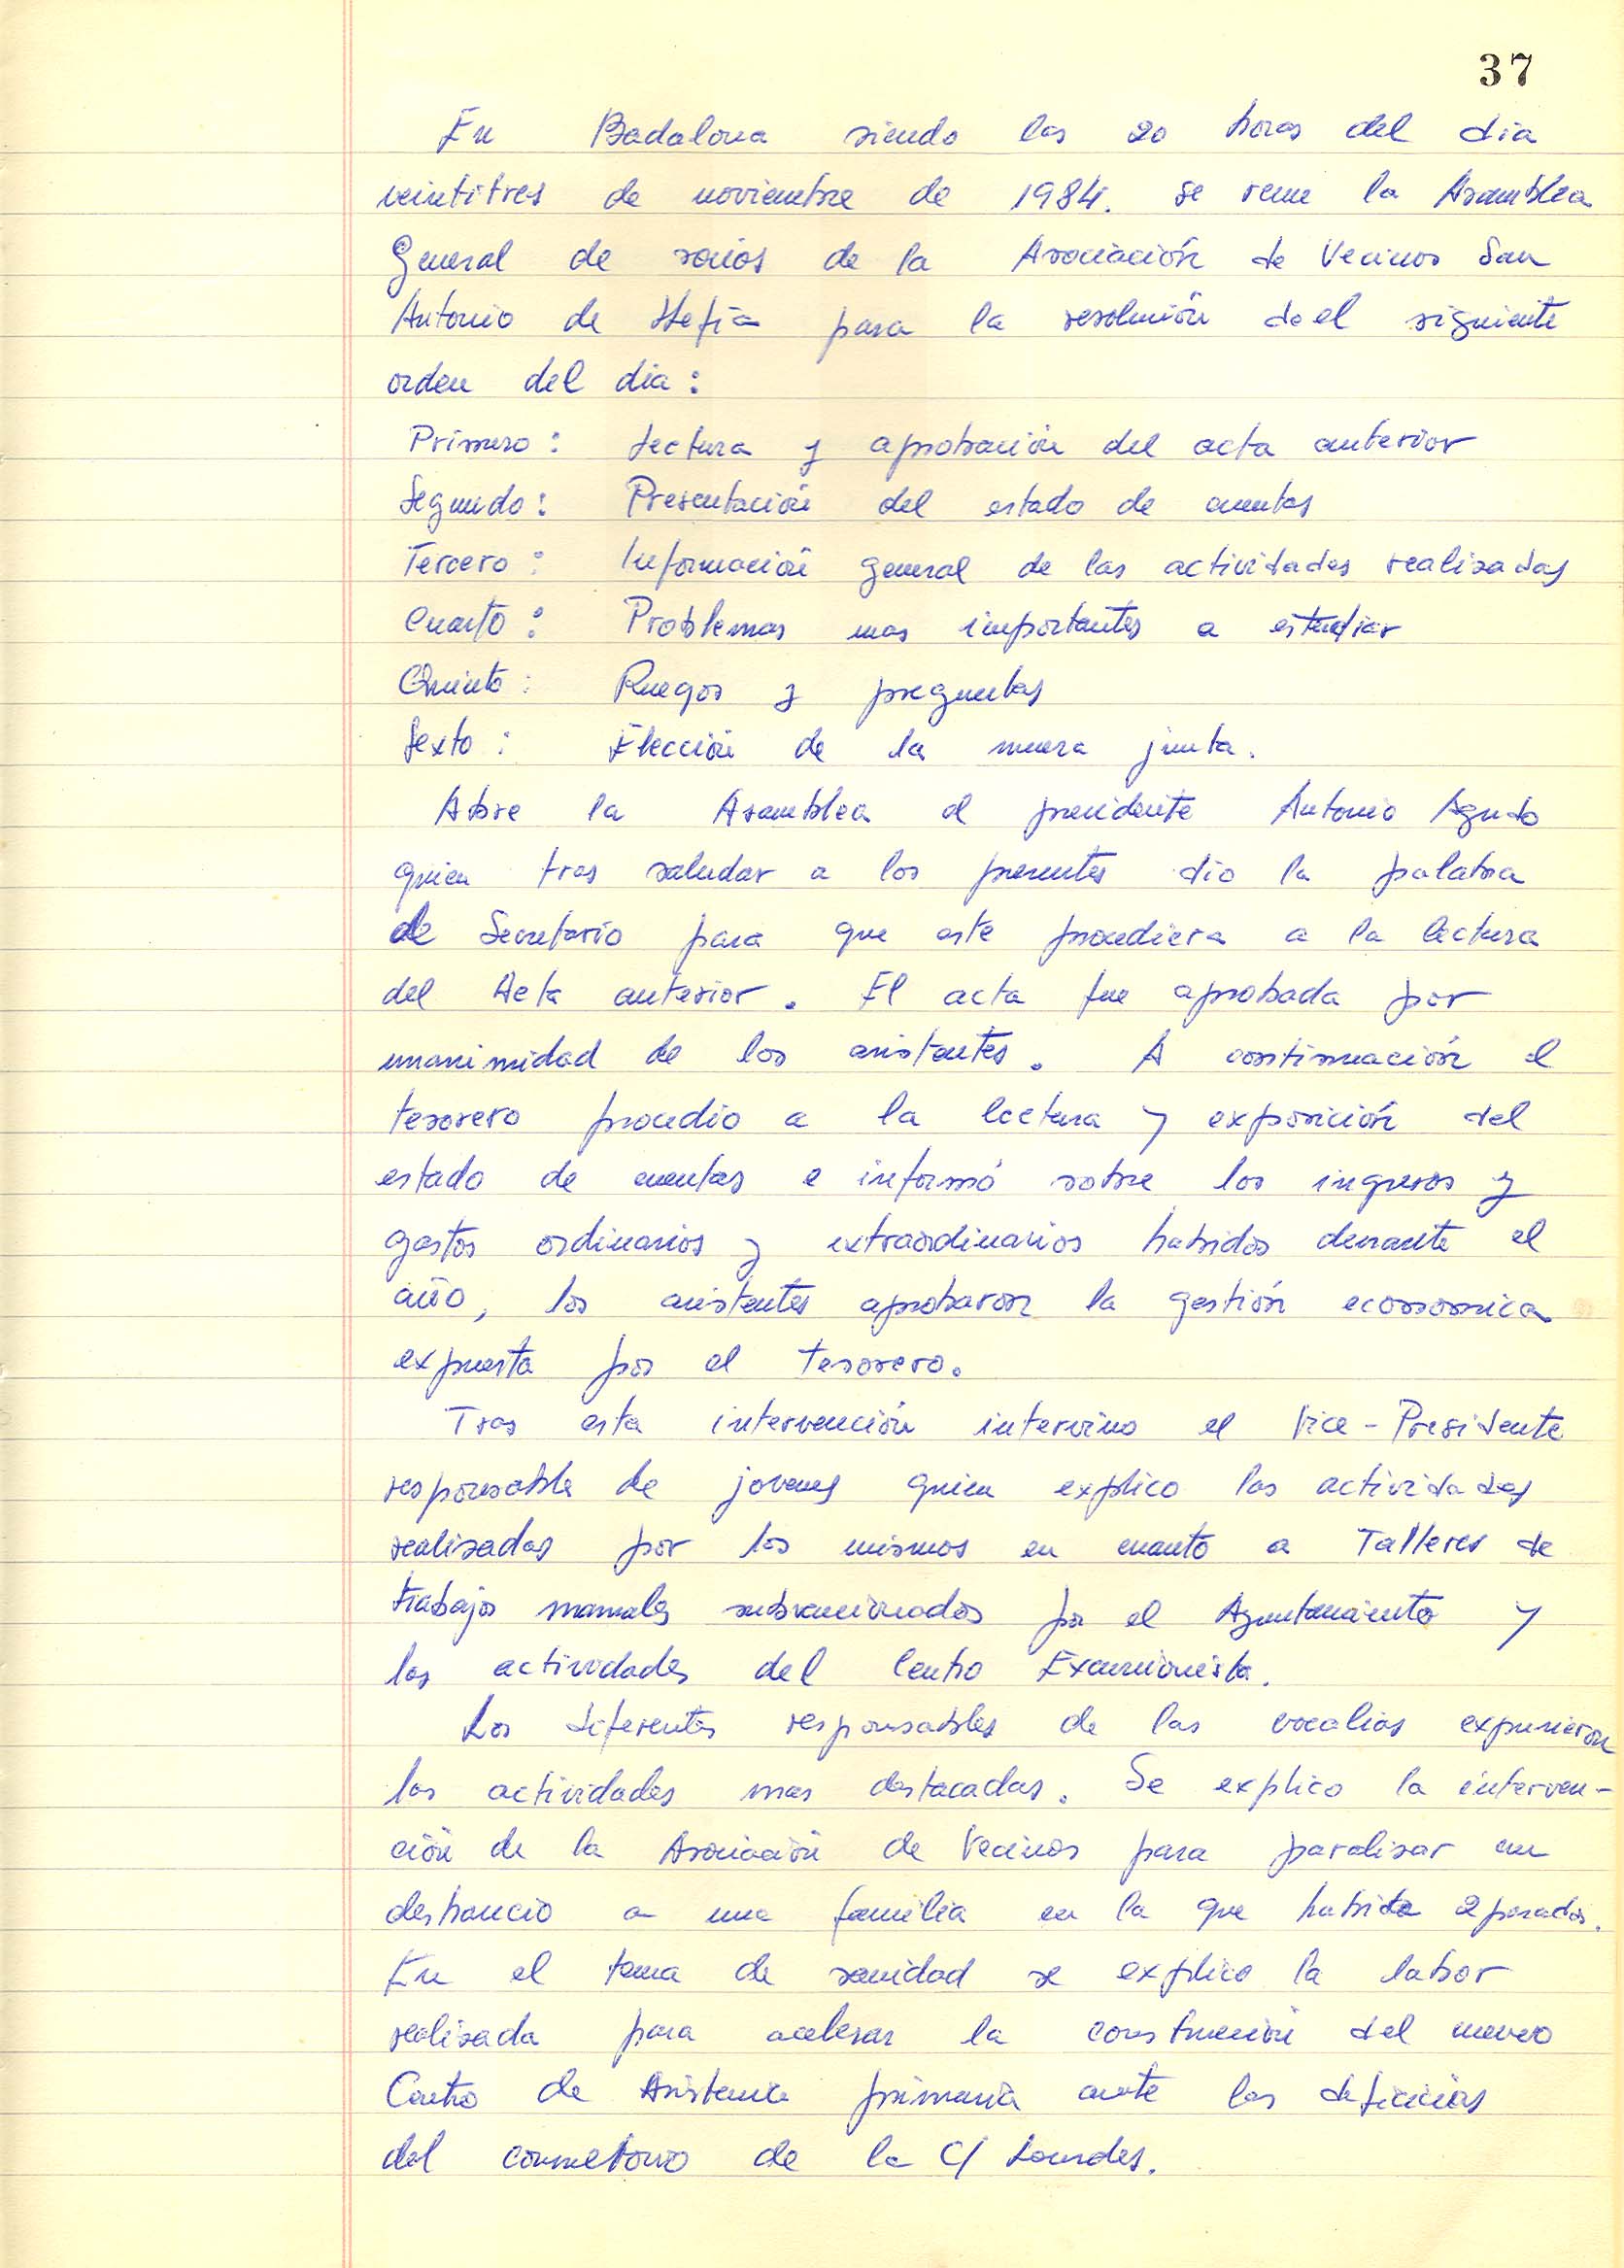 37
En Badalona siendo las 20 horas del dia
veintitres de noviembre de 1984. se reune la Asamblea
General de socios de la Asociación de Vecinos San
Antonio de Llefià para la resolución de el siguiente
orden del dia:
Primero: Lectura y aprobación del acta anterior
Segundo: Presentación del estado de cuentas
Tercero: Información general de las actividades realizadas
Cuarto: Problemas mas importantes a estudiar
Quinto: Ruegos y preguntas
Sexto: Elección de la nueva junta.
Abre la Asamblea el presidente Antonio Agudo
quien tras saludar a los presentes dio la palabra
al Secretario para que este procediera a la lectura
del Acta anterior. El acta fue aprobada por
unanimidad de los asistentes. A continuación el
tesorero procedio a la lectura y exposición del
estado de cuentas e informó sobre los ingresos y
gastos ordinarios y extraordinarios habidos durante el
año, los asistentes aprobaron la gestión economica
expuesta por el tesorero.
Tras esta intervención intervino el Vice-Presidente
responsable de jovenes quien explico las actividades
realizadas por los mismos en cuanto a Talleres de
trabajos manuales subvencionados por el Ayuntamiento y
las actividades del Centro Excursionista.
Los diferentes responsables de las vocalias expusieron
las actividades mas destacadas. Se explico la interven-
ción de la Asociación de Vecinos para paralizar un
deshaucio a una familia en la que habia 2 parados.
En el tema de sanidad se explico la labor
realizada para acelerar la construcción del nuevo
Centro de Asistencia primaria ante las deficicias
del consultorio de la C/ Lourdes.